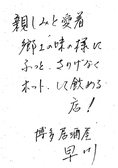 親しみと愛着
郷土の味の様に
ふっと、さりげなく
ホット、して飲める
店！
博多居酒屋
早川